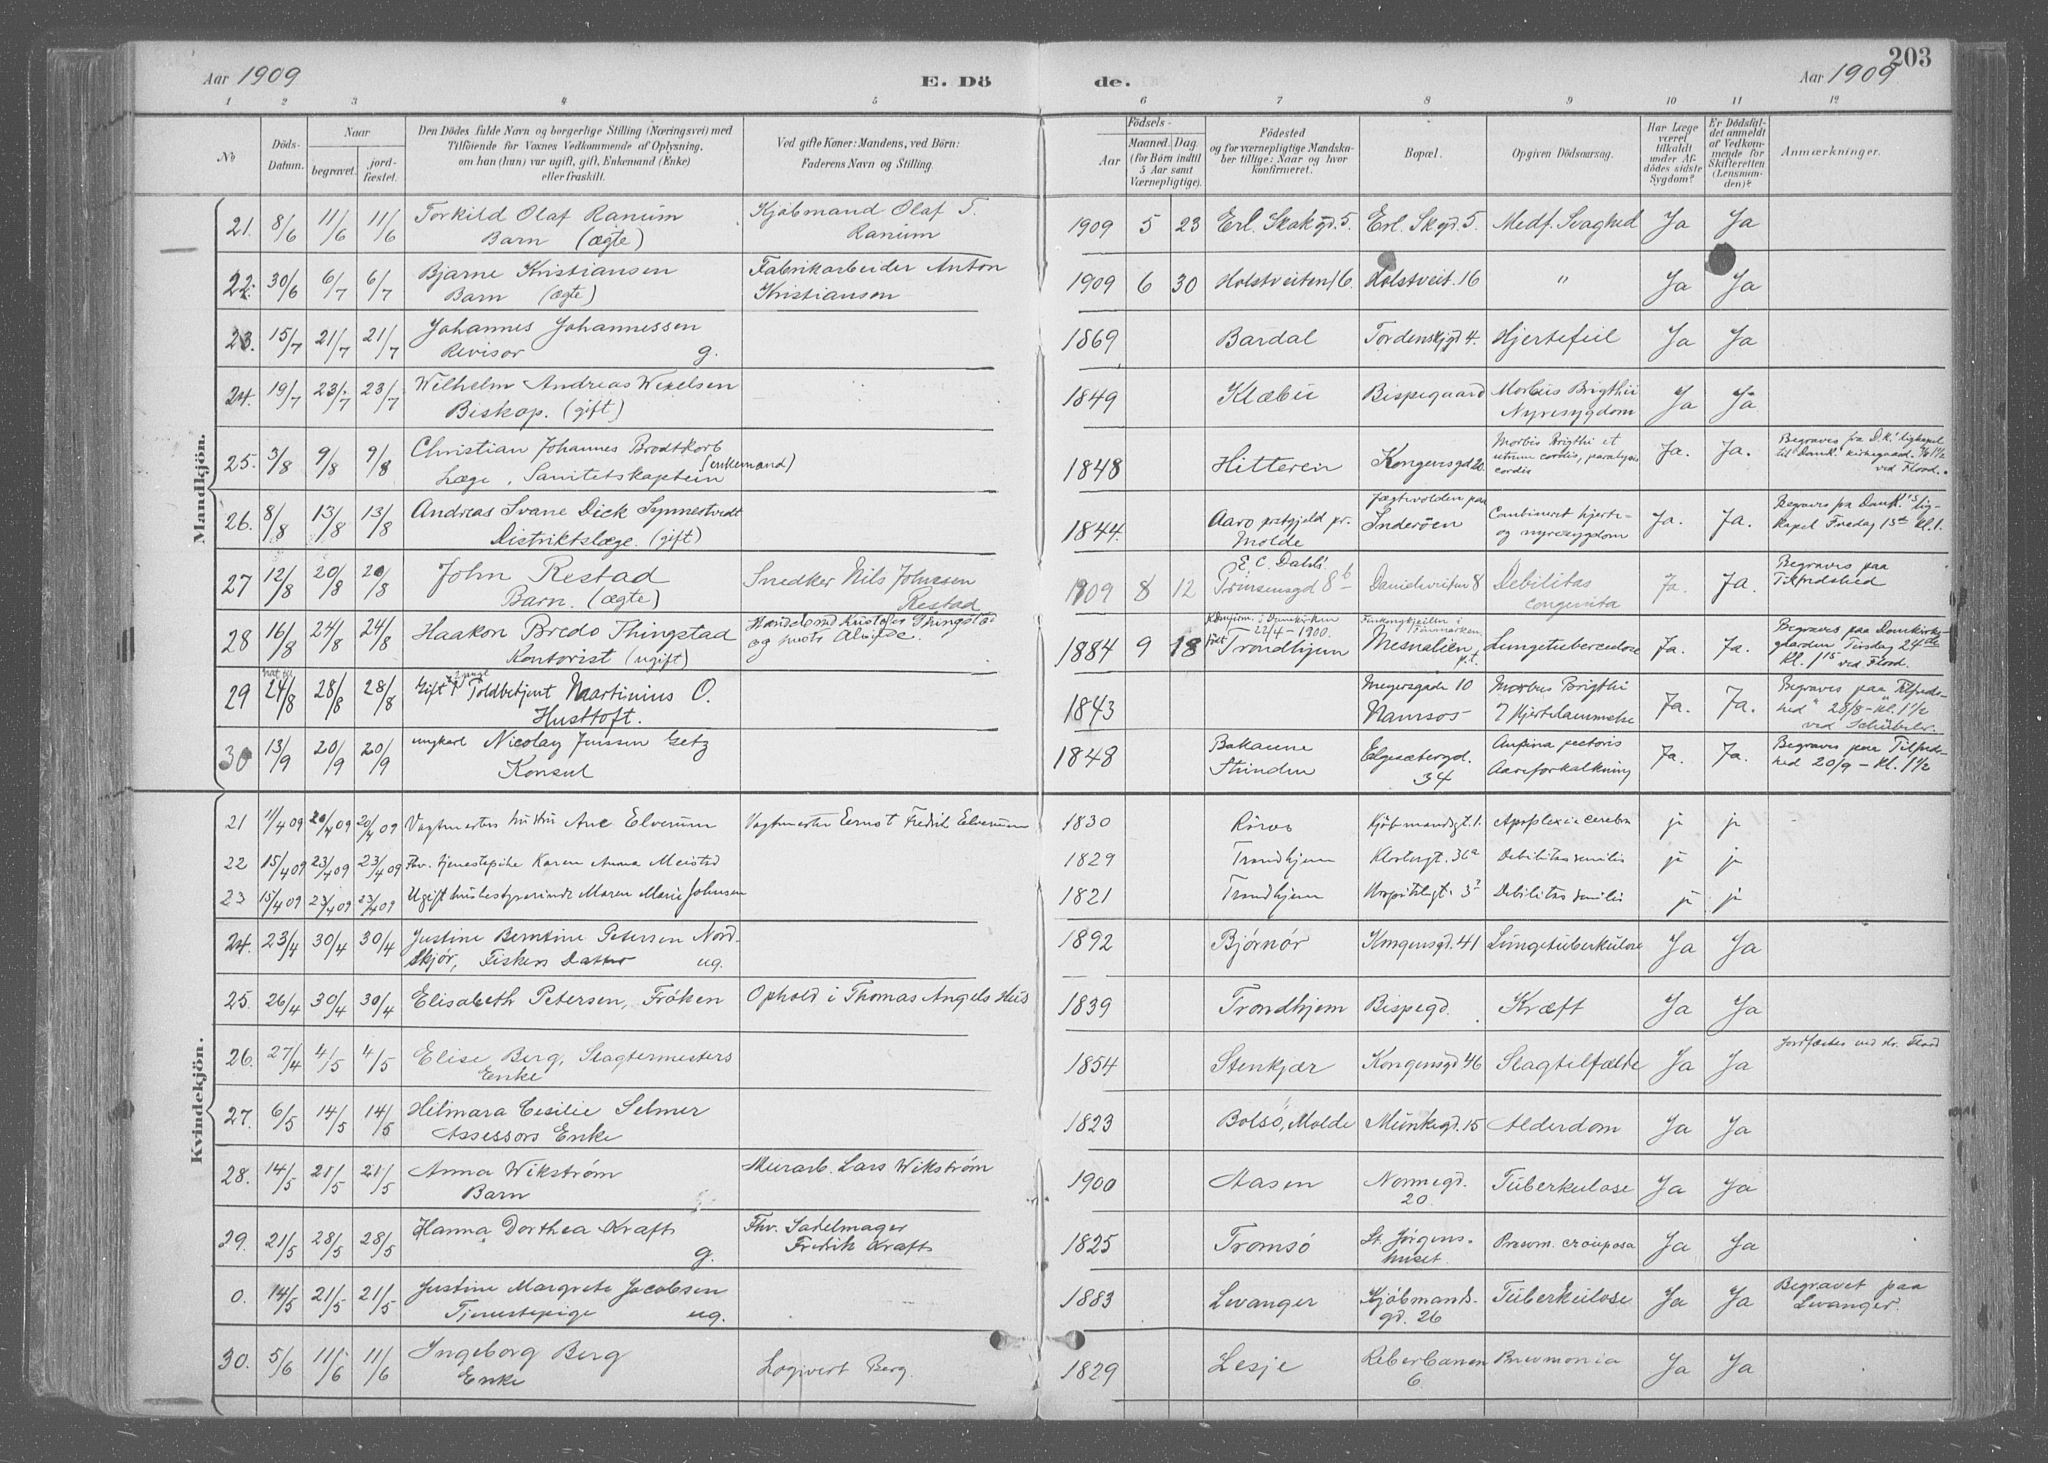 203
Aar 1909
E. Dö
de.
Aar 1909
1 2 3 4 5 6 7 8 9 10 11 12
No
Döds-Datum.
Naar
begravet.
jord-fæstet.
Den Dödes fulde Navn og borgerlige Stilling (Næringsvei) med
Tilföiende for Voxnes Vedkommende af Oplysning,
om han (hun) var ugift, gift, Enkemand (Enke)
eller fraskilt.
Ved gifte Koner: Mandens, ved Börn:
Faderens Navn og Stilling.
Födsels-
Aar
Maaned. Dag
(for Börn indtil
5 Aar samt
Værnepligtige).
Födested
og for værnepligtige Mandska-
ber tillige: Naar og hvor
konfirmeret.
Bopæl.
Opgiven Dödsaarsag.
Har Læge
været
tilkaldt
under Af-
dödes sidste
Sygdom?
Er Dödsfal-
det anmeldt
af Vedkom-
mende for
Skifteretten
(Lensman-
den)?
Anmærkninger.
Mandkjön.
21. 8/6 11/6 11/6 Torkild Olaf Ranum Barn (ægte) Kjöbmand Olaf T. Ranum 1909 5 23 Erl. Skakgd. 5. Erl. Skgd. 5. Medf. Svaghed Ja Ja
22. 30/6 6/7 6/7 Bjarne Kristiansen Barn (ægte) Fabrikarbeider Anton Kristiansen 1909 6 30 Holstveiten 16. Holstveit. 16 " Ja Ja
23. 15/7 21/7 21/7 Johannes Johannessen Revisor g. 1869 Bardal Tordenskjgd 4. Hjertefeil Ja Ja
24. 19/7 23/7 23/7 Wilhelm Andreas Wexelsen Biskop. (gift) 1849 Klæbu Bispegaard Morbus Brigthii Nyresygdom Ja Ja
25. 3/8 9/8 9/8 Christian Johannes Brodtkorb (enkemand) Læge, Sanitetskaptein 1848 Hitteren Kongensgd 20. Morbis Brigthi et cordis, paralysis cordis Ja. Ja. Begraves fra D.K.' ligkapel til Domk. kirkegaard. ved Flood.
26. 8/8 13/8 13/8 Andreas Svane Dick Synnestvedt Distriktslæge. (gift) 1844. Aaro prstgjeld pr. Molde paa Inderöen Combineret hjerte- og nyresygdom Ja. Ja. Begraves fra Domk's lig-kapel Fredag 13de kl. 1.
27 12/8 20/8 20/8 John Restad Barn. (ægte) Snedker Nils Johnsen Restad 1909 8 12 E. C. Dahls 8 b Danielsveiten 8 Debilitas congenita Ja. Ja. Begraves paa Tilfredshed
28 16/8 24/8 24/8 Haakon Bredo Thingstad Kontorist (ugift) Handelsmd Kristofer Thingstad og hustr Alvilde. 1884 9 18 Konfirm. i Domkirken 22/4 - 1900. föt Trondhjem Mesnalien p.t. Lungetuberculose Ja. Ja. Begraves paa Domkirke-gaarden Tirsdag 24de kl. 1 15 ved Flood.
29 24/8 28/8 28/8 Gift Toldbetjent Martinius O. Husttoft. 1843 Meyersgade 10 Namsos Morbus Brigthi Hjertelammelse Ja. Ja. Begraves paa "Tilfreds-hed" 28/8 - kl. 1 1/2 ved Schübeler.
30 13/9 20/9 20/9 ungkarl Nicolay Jenssen Getz Konsul 1848 Bakaune Strinden Elgesætergd. 34 Angina pectoris Aareforkalkning Ja. Ja. Begraves paa Tilfreds-hed 20/9 - kl. 1 1/2
Kvindekjön.
21 11/4 09 20/4 09 20/4 09 Vagtmesters hustru Ane Elverum Vagtmester Ernst Fredrik Elverum 1830 Röros Kjöbmandsgt. 1. Apoplexia cerebri ja ja
22 15/4 09 23/4 09 23/4 09 Fhv. tjenestepike Karen Anna Meistad 1829 Trondhjem Klostergt. 36a Debilitas senilis ja ja
23 15/4 09 23/4 09 23/4 09 Ugift husbestyrerinde Maren Marie Johnsen 1821 Trondhjem Hospitalsgt. 3 Debilitas senilis ja ja
24. 23/4 30/4 30/4 Justine Berntine Petersen Nord-skjör, Fiskers Datter ug. 1892 Björnör Kongensgd. 41 Lungetuberkulose Ja Ja
25. 26/4 30/4 30/4 Elisabeth Petersen, Fröken Ophold i Thomas Angels Hus 1839 Trondhjem Bispegd. Kræft Ja Ja
26. 27/4 4/5 4/5 Elise Berg, Slagtermesters Enke 1854 Stenkjær Kongensgd 46 Slagtilfælde Ja Ja Jordfæstes ved hr. Flood
27. 6/5 14/5 14/5 Hilmara Cesilie Selmer Assessors Enke 1823 Bolsö, Molde Munkegd. 15 Alderdom Ja Ja
28. 14/5 21/5 21/5 Anna Wikström Barn Murarb. Lars Wikström 1900 Aasen Nonnegd. 20. Tuberkulose Ja Ja
29. 21/5 28/5 28/5 Hanna Dorthea Krafts g. Fhv. Sadelmager Fredrik Krafts 1825 Tromsö St. Jörgens-huset. Pneum. crouposa Ja Ja
0. 14/5 21/5 21/5 Justine Margrete Jacobsen Tjenestepige ug. 1883 Levanger Kjöbmands-gd. 26 Tuberkulose Ja Ja Begravet paa Levanger.
30. 5/6 11/6 11/6 Ingeborg Berg Enke Logivert Berg. 1829 Lesje Reberbanen 6. Pneumonia Ja Ja